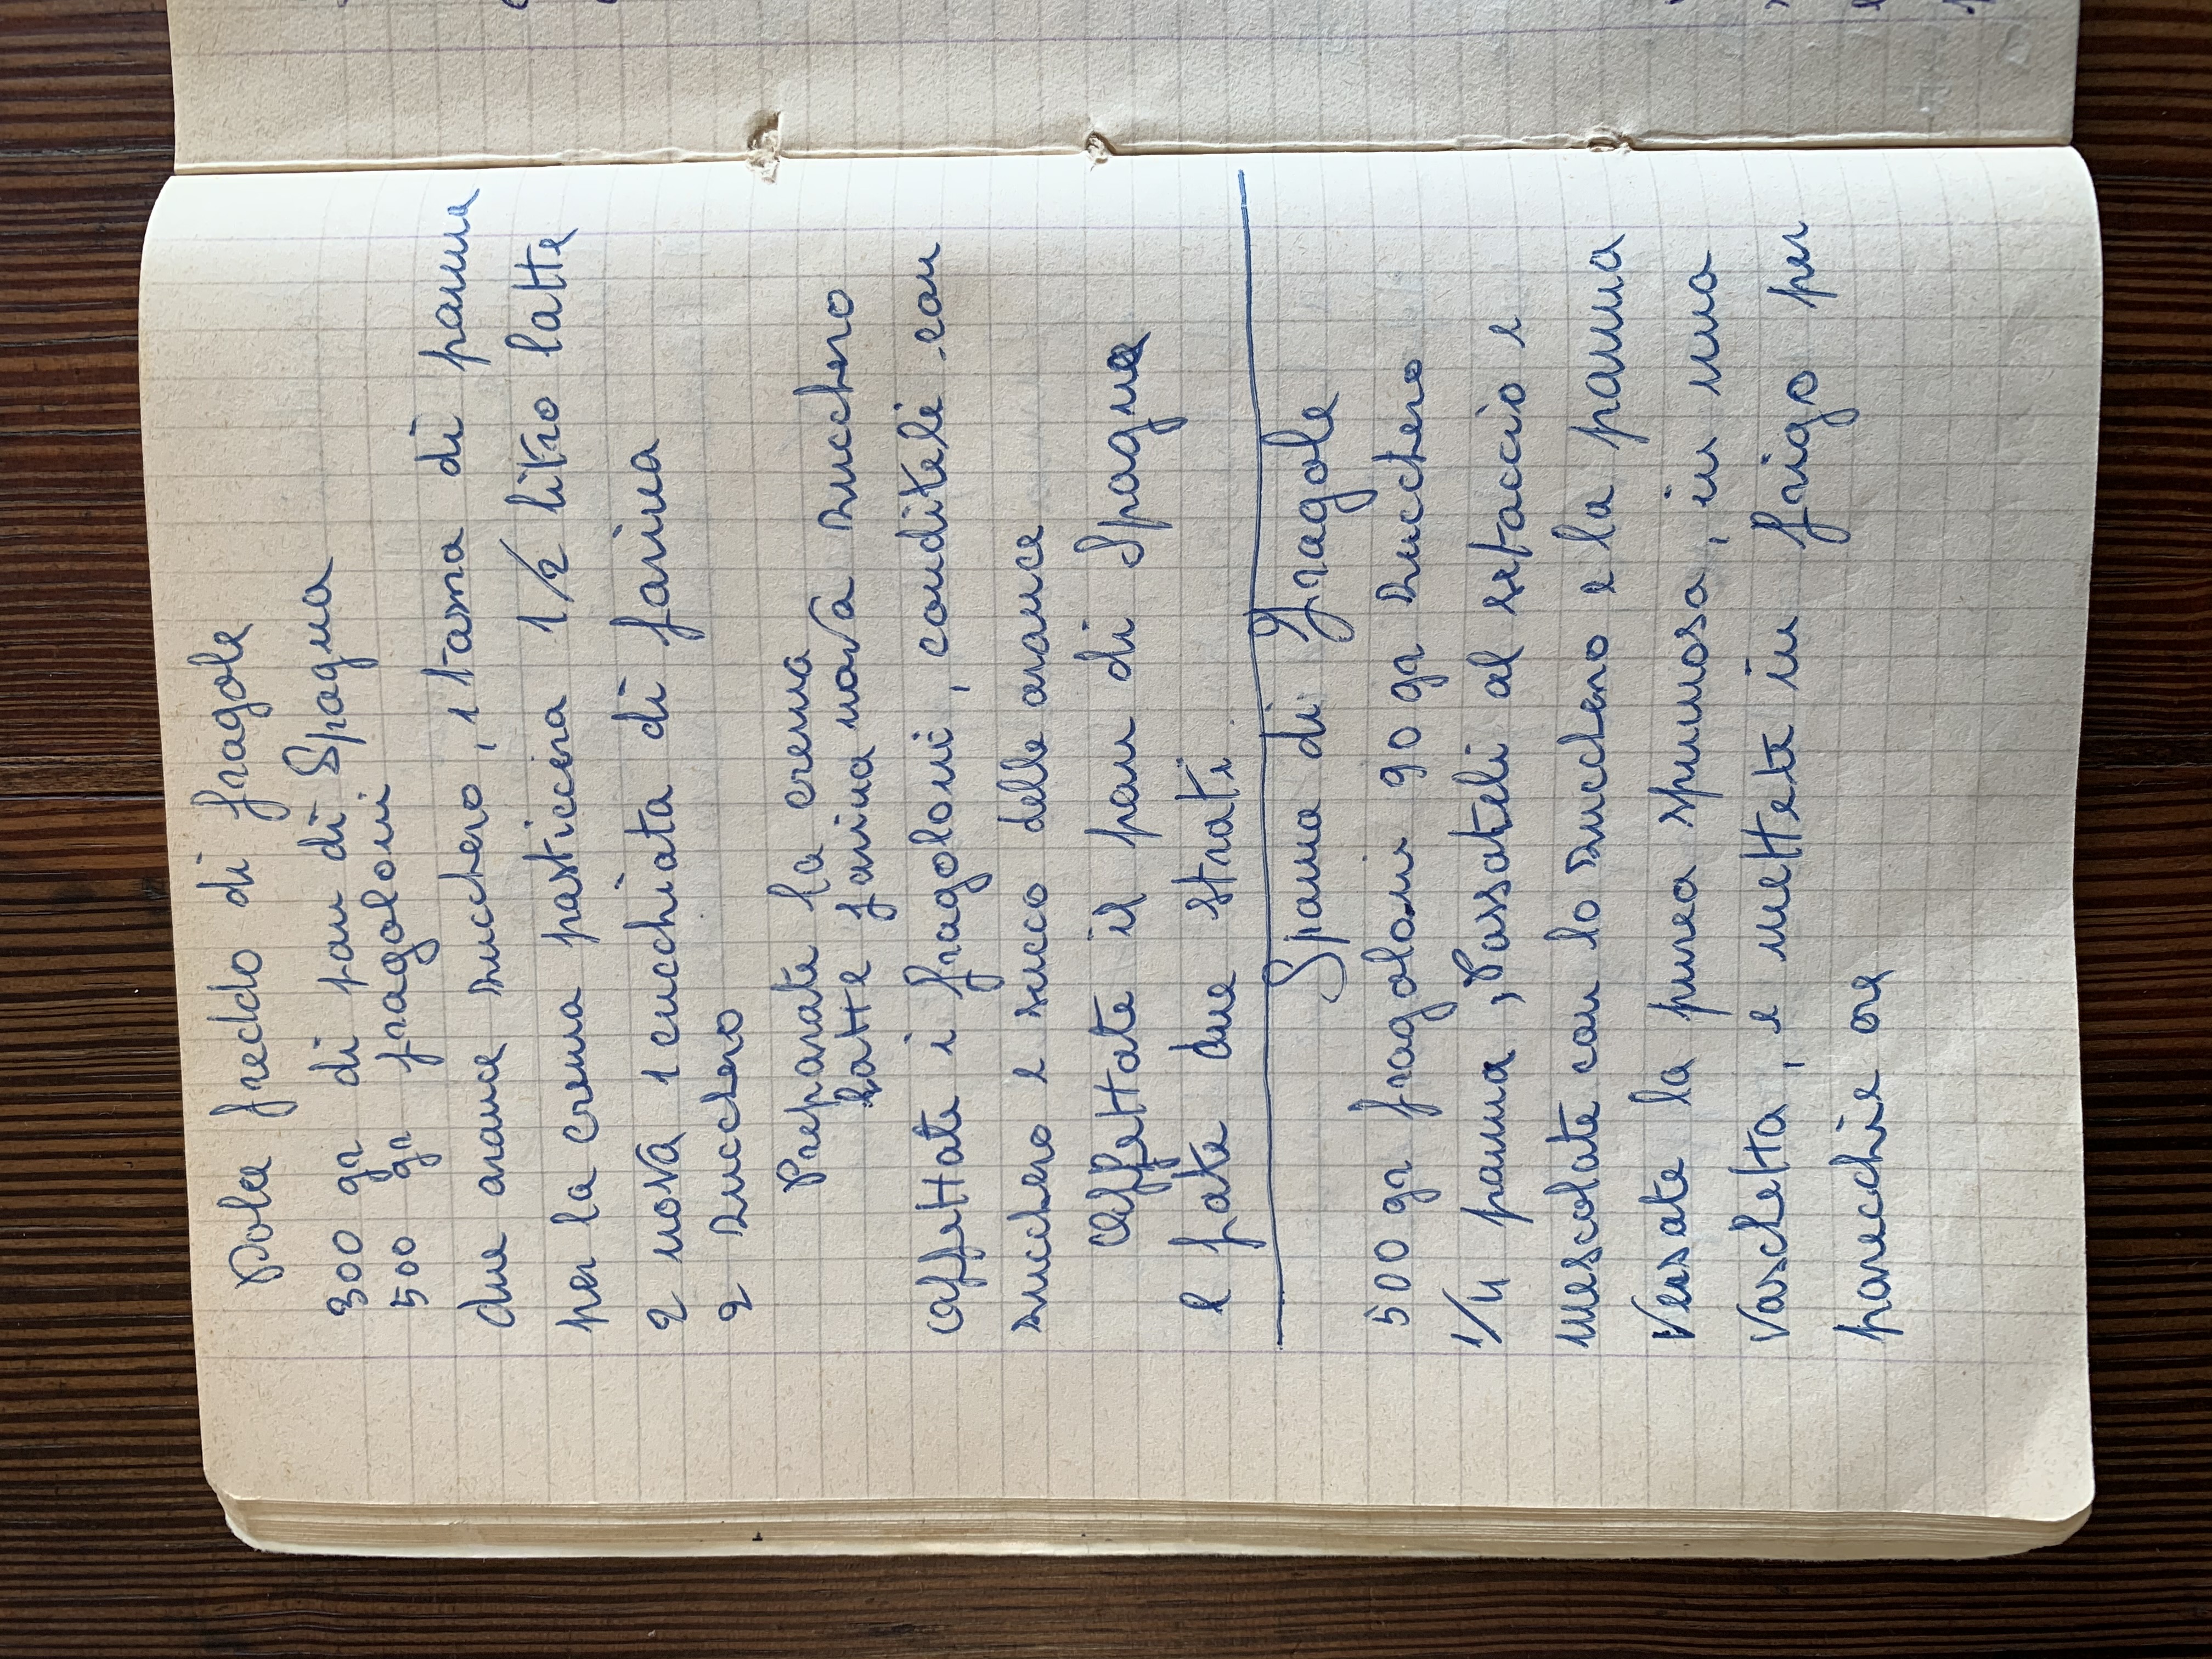 Dolce freddo di fragole
300 gr di pan di Spagna
500 gr fragoloni
due arance zucchero, 1 tazza di panna
per la crema pasticcera 1/2 litro latte
2 uova 1 cucchiata di farina
2 zucchero
Preparate la crema
latte farina uova zucchero
Affettate i fragoloni, conditeli con
zucchero e succo delle arance
Affettate il pan di Spagna
e fate due strati.
Spuma di Fragole
500 gr fragoloni 90 gr zucchero
1/4 panna, Passateli al setaccio e
mescolate con lo zucchero e la panna
Versate la purea spumosa, in una
vaschetta, e mettete in frigo per
parecchie ore